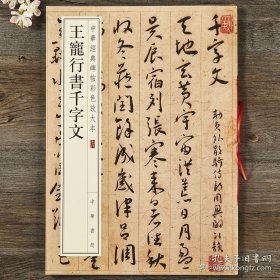 千字文
勑員外散騎侍郎周興嗣次韻
天地玄黃宇宙洪荒日月盈
昃辰宿列張寒来暑往秋
收冬藏閏餘成歲律吕
中華經典碑帖彩色放大本
王寵行書千字文
中華書局
孔夫子旧书网